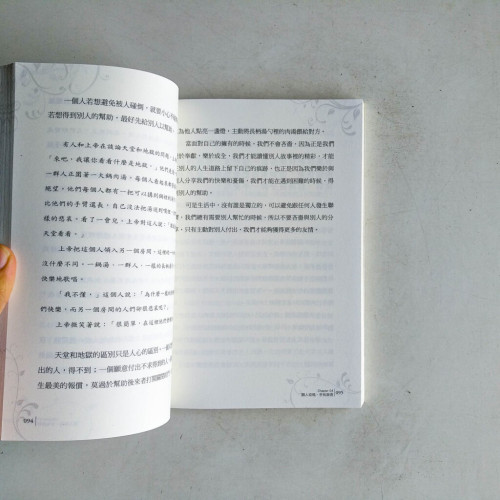 一個人若想避免被人碰倒，就要小心
若想得到別人的幫助，最好先給別人以幫助。
有人和上帝在談論天堂和地獄的問題，
「來吧，我讓你看看什麼是地獄。」他們
一群人正圍著一大鍋肉湯，每個人看起來
絕望，他們每個人都有一把可以
比他們的手臂還長，自己沒法把湯送
樣的悲哀。看了一會兒，上帝對這人說：「
天堂看看。」
上帝把這個人領入另一個房間，這裡的一
沒什麼不同。一鍋湯、一群人、一樣的長柄湯
快樂地歌唱。
「我不懂，」這個人說：「為什麼一樣的
們快樂，而另一個房間的人們卻很悲哀呢？」
上帝微笑著說：「很簡單，在這裡他們
天堂和地獄的區別只是人心的區別。一
出的人，得不到；一個願意付出不求
生最美的報償，莫過於幫助後來者打開
094
為他人點亮一盞燈，主動將長柄湯勺裡的肉湯餵給對方。
當面對自己的擁有的時候，我們不會吝嗇，因為正是我們
的奉獻，樂於成全，我們才能讀懂別人故事裡的精彩，才能
在別人的人生道路上留下自己的痕跡，也正是因為我們樂於與
人分享我們的快樂和憂傷，我們才能在遇到困難的時候，得
到別人的幫助。
可是生活中，沒有誰是獨立的，可以避免跟任何人發生聯
繫，我們總有需要別人幫忙的時候，所以不要吝嗇與別人的分
享，只有主動對別人付出，我們才能夠獲得更多的友情。